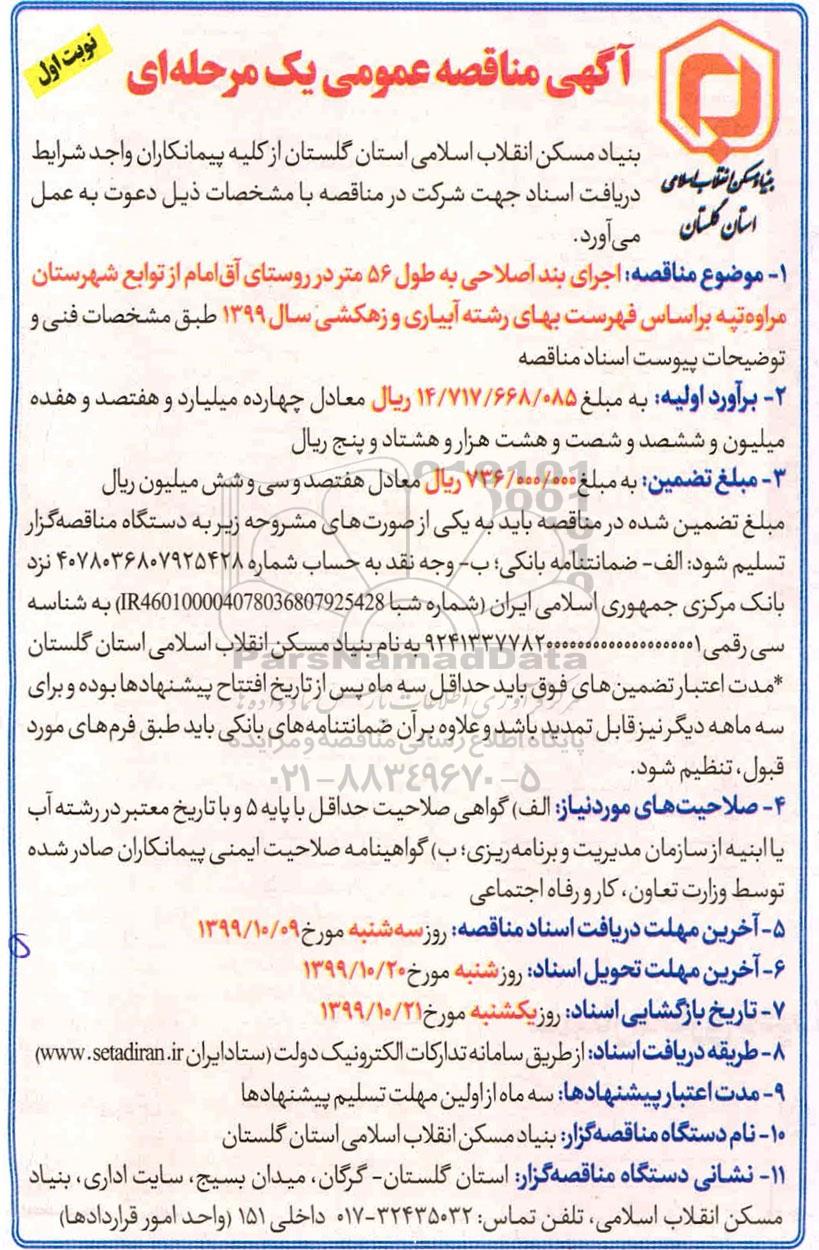 نوبت اول
آگهی مناقصه عمومی یک مرحله‌ای
بنیاد مسکن انقلاب اسلامی
استان گلستان
بنیاد مسکن انقلاب اسلامی استان گلستان از کلیه پیمانکاران واجد شرایط
دریافت اسناد جهت شرکت در مناقصه با مشخصات ذیل دعوت به عمل
می‌آورد.
۱- موضوع مناقصه: اجرای بند اصلاحی به طول ۵۶ متر در روستای آق‌امام از توابع شهرستان
مراوه‌تپه براساس فهرست بهای رشته آبیاری و زهکشی سال ۱۳۹۹ طبق مشخصات فنی و
توضیحات پیوست اسناد مناقصه
۲- برآورد اولیه: به مبلغ ۱۴/۷۱۷/۶۶۸/۰۸۵ ریال معادل چهارده میلیارد و هفتصد و هفده
میلیون و ششصد و شصت و هشت هزار و هشتاد و پنج ریال
۳- مبلغ تضمین: به مبلغ ۷۳۶/۰۰۰/۰۰۰ ریال معادل هفتصد و سی و شش میلیون ریال
مبلغ تضمین شده در مناقصه باید به یکی از صورت‌های مشروحه زیر به دستگاه مناقصه‌گزار
تسلیم شود: الف- ضمانتنامه بانکی؛ ب- وجه نقد به حساب شماره ۴۰۷۸۰۳۶۸۰۷۹۲۵۴۲۸ نزد
بانک مرکزی جمهوری اسلامی ایران (شماره شبا IR460100004078036807925428) به شناسه
سی رقمی ۹۲۴۱۳۳۷۷۸۲۰۰۰۰۰۰۰۰۰۰۰۰۰۰۰۰۰۰۰۱ به نام بنیاد مسکن انقلاب اسلامی استان گلستان
ParsNamadData
*مدت اعتبار تضمین‌های فوق باید حداقل سه ماه پس از تاریخ افتتاح پیشنهادها بوده و برای
سه ماهه دیگر نیز قابل تمدید باشد و علاوه بر آن ضمانتنامه‌های بانکی باید طبق فرم‌های مورد
پایگاه اطلاع رسانی مناقصه و مزایده
قبول، تنظیم شود.
۰۲۱-۸۸۳۴۹۶۷۰-۵
۴- صلاحیت‌های موردنیاز: الف) گواهی صلاحیت حداقل با پایه ۵ و با تاریخ معتبر در رشته آب
یا ابنیه از سازمان مدیریت و برنامه‌ریزی؛ ب) گواهینامه صلاحیت ایمنی پیمانکاران صادر شده
توسط وزارت تعاون، کار و رفاه اجتماعی
۵- آخرین مهلت دریافت اسناد مناقصه: روز سه‌شنبه مورخ ۱۳۹۹/۱۰/۰۹
۶- آخرین مهلت تحویل اسناد: روز شنبه مورخ ۱۳۹۹/۱۰/۲۰
۷- تاریخ بازگشایی اسناد: روز یکشنبه مورخ ۱۳۹۹/۱۰/۲۱
۸- طریقه دریافت اسناد: از طریق سامانه تدارکات الکترونیک دولت (ستاد ایران www.setadiran.ir)
۹- مدت اعتبار پیشنهادها: سه ماه از اولین مهلت تسلیم پیشنهادها
۱۰- نام دستگاه مناقصه‌گزار: بنیاد مسکن انقلاب اسلامی استان گلستان
۱۱- نشانی دستگاه مناقصه‌گزار: استان گلستان- گرگان، میدان بسیج، سایت اداری، بنیاد
مسکن انقلاب اسلامی، تلفن تماس: ۳۲۴۳۵۰۳۲-۰۱۷ داخلی ۱۵۱ (واحد امور قراردادها)